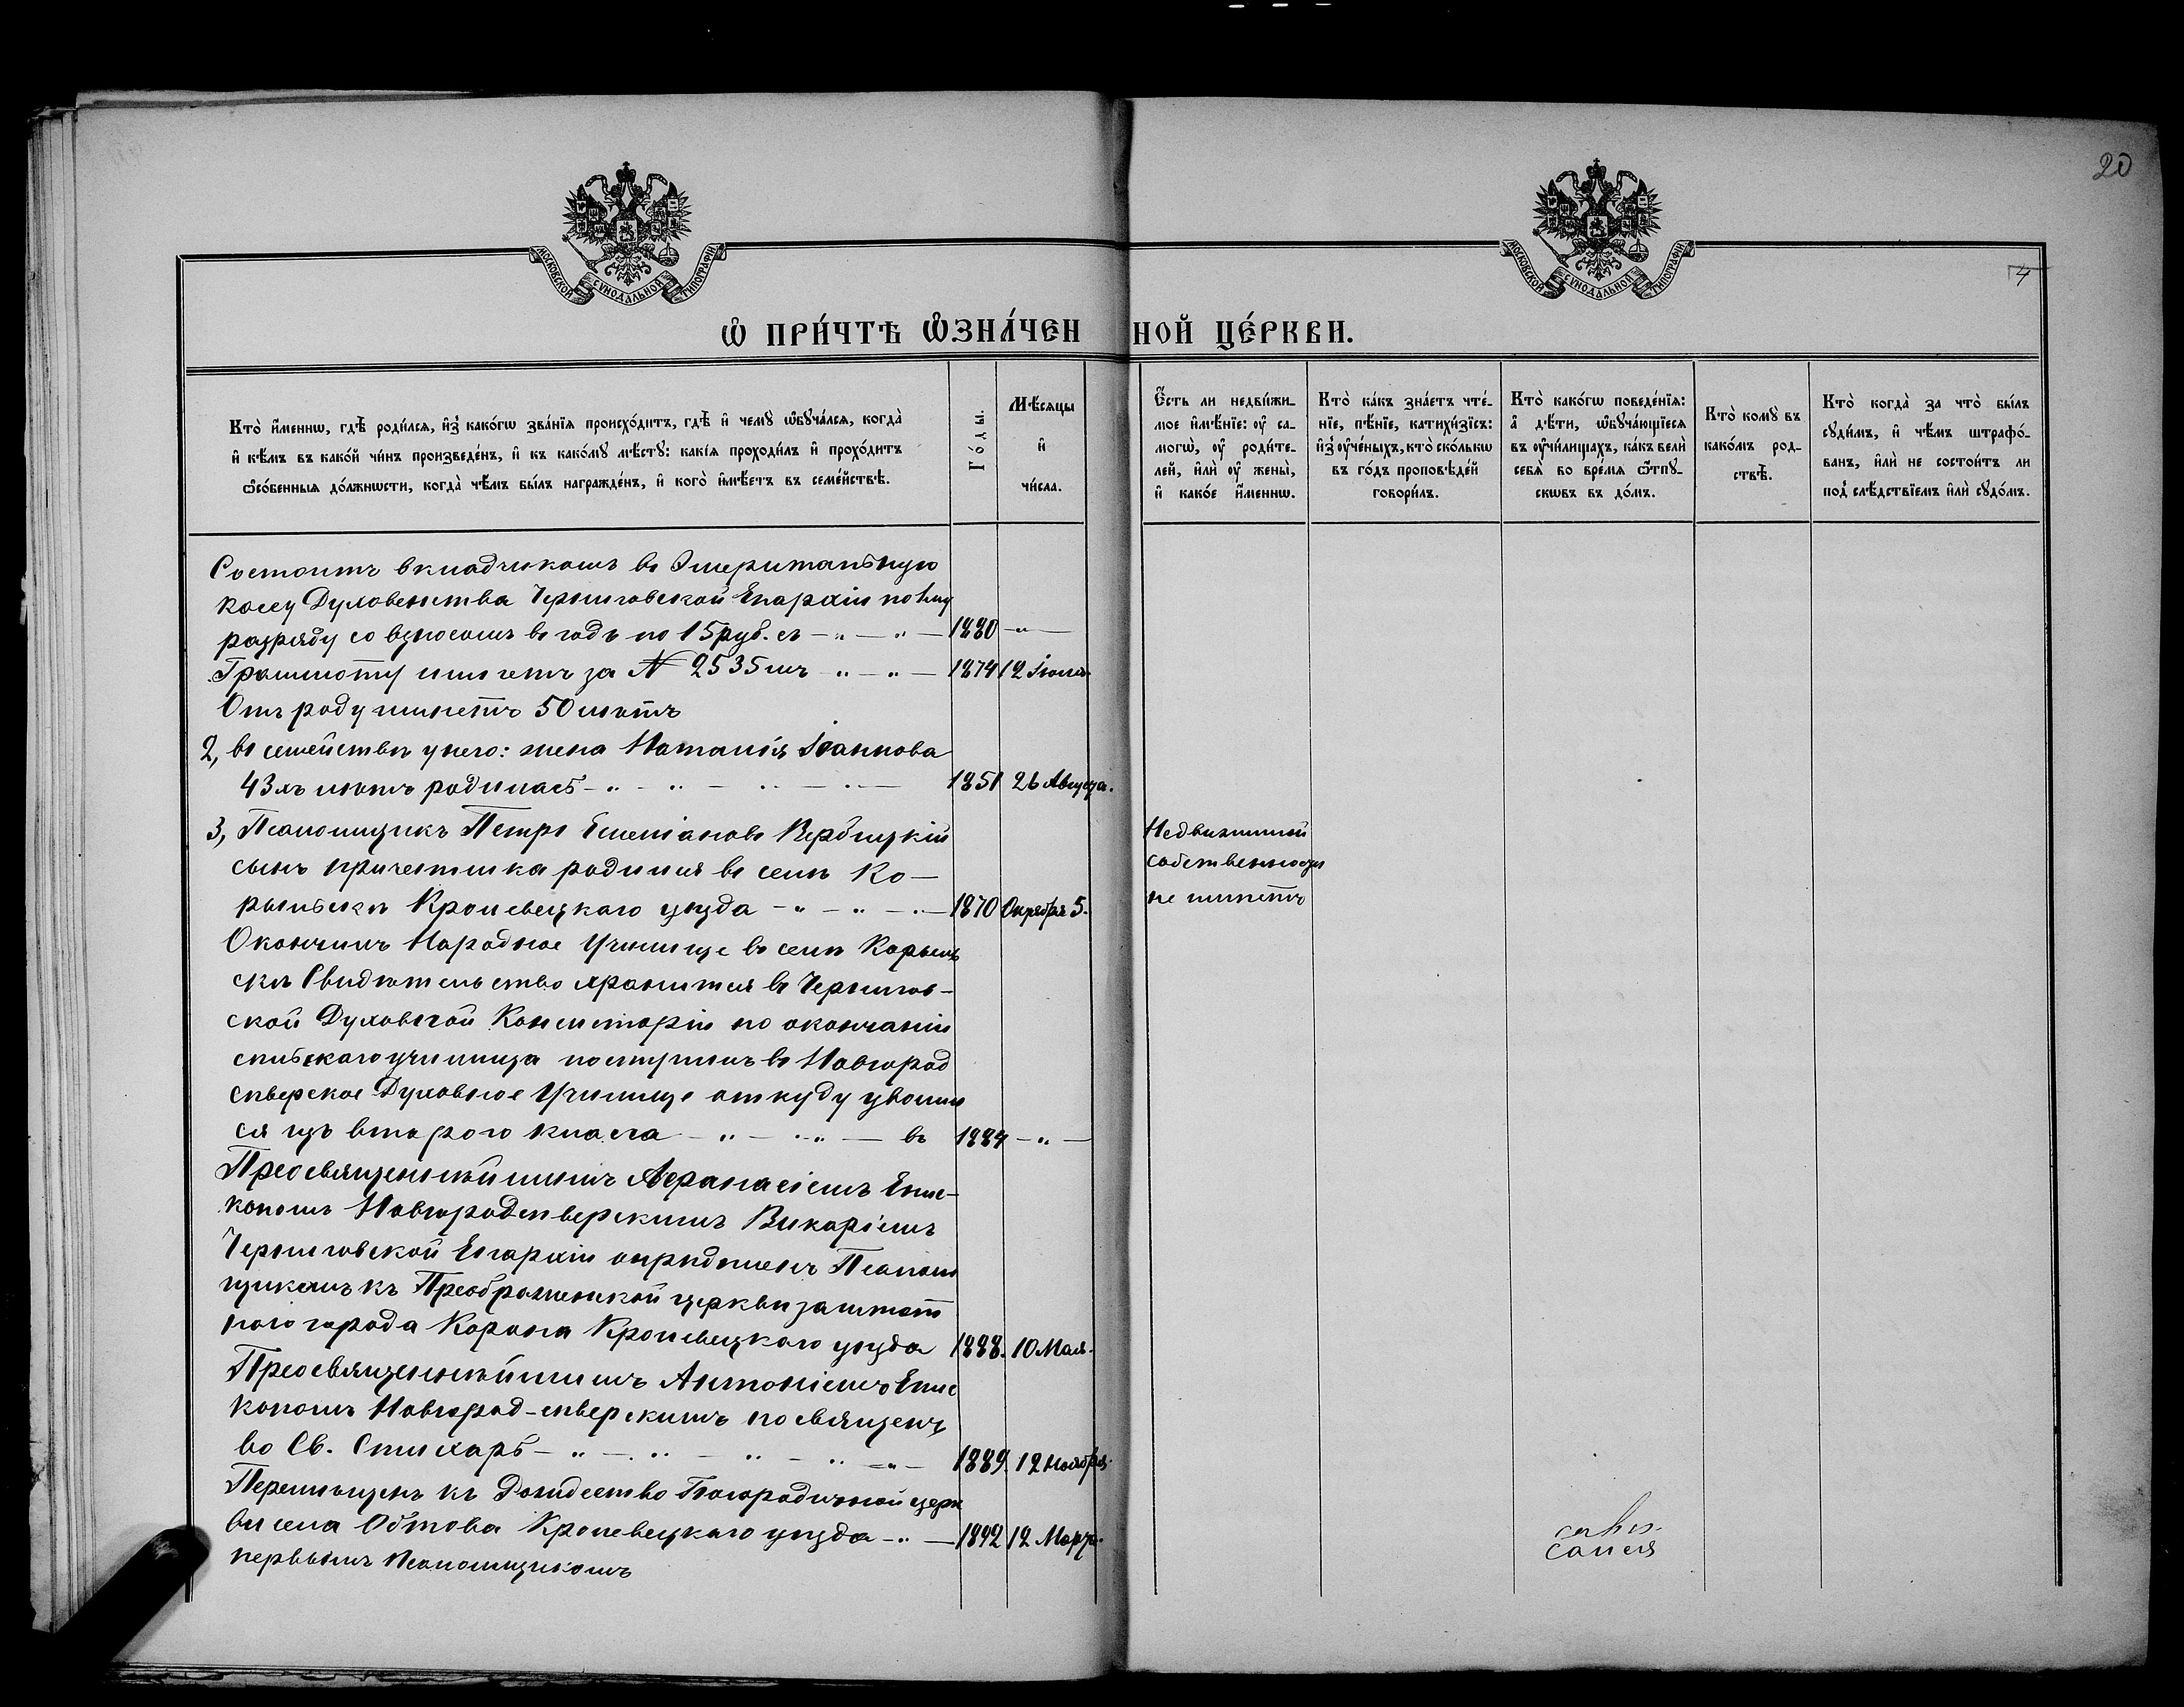 20
4
МОСКОВСКОЙ СѴНОДАЛЬНОЙ ТИПОГРАФІИ
МОСКОВСКОЙ СѴНОДАЛЬНОЙ ТИПОГРАФІИ
Ѡ ПРИ́ЧТѢ ѠЗНА́ЧЕННОЙ ЦЕ́РКВИ.
Кто̀ и҆́менно, гдѣ̀ роди́лся, и҆з̾ како́гѡ зва́нїя происхо́дитъ, гдѣ̀ и҆ чемꙋ̀ ѡ҆бꙋча́лся, когда̀
и҆ кѣ́мъ въ како́й чи́нъ произведе́нъ, и҆ къ како́мꙋ мѣ́стꙋ: какі́я проходи́лъ и҆ прохо́дитъ
ѻ҆со́бенныя до́лжности, когда̀ чѣ́мъ бы́лъ награжде́нъ, и҆ кого̀ и҆мѣ́етъ въ семе́йствѣ.
Го́ды.
Мѣ́сяцы
и҆
чи́сла.
Є҆́сть ли недви́жи-
мое и҆мѣ́нїе: ᲂу҆ са-
могѡ̀, ᲂу҆ роди́те-
лей, и҆лѝ ᲂу҆ жены̀,
и҆ како́е и҆́менно.
Кто̀ ка́къ зна́етъ чте́-
нїе, пѣ́нїе, катихи́зїсъ:
и҆з̾ ᲂу҆че́ныхъ, кто̀ ско́лькѡ
въ го́дъ проповѣ́дей
говори́лъ.
Кто̀ како́гѡ поведе́нїя:
а҆ дѣ́ти, ѡ҆бꙋча́ющїеся
въ ᲂу҆чи́лищахъ, ка́къ велѝ
себѧ̀ во вре́мя ѿпꙋ-
сковъ въ до́мъ.
Кто̀ комꙋ̀ въ
како́мъ род-
ствѣ̀.
Кто̀ когда̀ за что̀ бы́лъ
сꙋди́мъ, и҆ чѣ́мъ штрафо́-
ванъ, и҆лѝ не состои́тъ ли
под̾ слѣ́дствїемъ и҆лѝ сꙋдо́мъ.
Состоитъ вкладчикомъ въ Эмеритальную
кассу Духовенства Черниговской Епархіи по
разряду со взносомъ въ годъ по 15 руб. съ — „ — „ — 1880 — „ —
Граммоту имѣетъ за № 2535мъ — „ — „ — 1874 12 Іюля
Отъ роду имѣетъ 50 лѣтъ
2, въ семействѣ у него: жена Наталія Іоаннова
43хъ лѣтъ родилась — „ „ — „ — „ — 1851 26 Августа.
3, Псаломщикъ Петръ Вербицкій
сынъ причетника родился въ селѣ Ко-
рыльскѣ Кролевецкаго уѣзда — „ — „ — „ — 1870 Октября 5.
Недвижимой
собственности
не имѣетъ
Окончилъ Народное Училище въ селѣ Корыль
скѣ Свидѣтельство хранится въ Чернигов-
ской Духовной Консисторіи по окончаніи
сельскаго училища поступилъ въ Новгород
сѣверское Духовное Училище откуду уволил
ся изъ втораго класса — „ — „ — въ 1884 — „ —
Преосвященнѣйшимъ Афанасіемъ Епис-
копомъ Новгородсѣверскимъ Викаріемъ
Черниговской Епархіи опредѣленъ Псалом
щикомъ къ Преображенской церкви заштат
наго города Коропа Кролевецкаго уѣзда 1888. 10 Мая.
Преосвященнѣйшимъ Антоніемъ Епис
копомъ Новгород-сѣверскимъ посвященъ
во Св. Стихарь — „ — „ — „ — „ — „ — 1889. 12 Ноября.
Перемѣщенъ къ Рождество Богородичной церк
ви села Обтова Кролевецкаго уѣзда — „ — 1892 12 Марта.
первымъ Псаломщикомъ